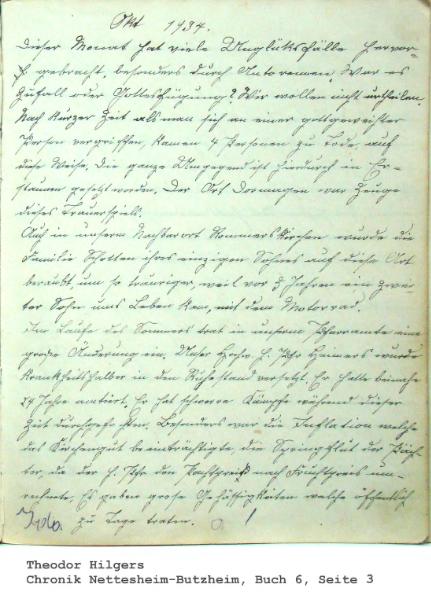 Okt 1934.
Dieser Monat hat viele Unglüksfälle hervor-
gebracht, besonders durch Autorennen. War es
Zufall oder Gottesfügung? Wir wollen nicht urtheilen.
Nach kurzer Zeit als man sich an einer gottgeweihter
Person vergriffen, kamen 4 Personen zu Tode, auf
diese Weise. Die ganze Umgegend ist hierdurch in Er-
staunen gesetzt worden. Der Ort Dormagen war Zeuge
dieses Trauerspiels.
Auch in unserm Nachbarort Rommerskirchen wurde die
Familie Schotten ihres einzigen Sohnes auf diese Art
beraubt um so trauriger, weil vor 3 Jahren ein zwei-
ter Sohn ums Leben kam, mit dem Motorrad.
Im Laufe des Sommers trat in unserm Pfarramte eine
große Änderung ein. Unser Hochw. H. Pfr Heimers wurde
krankheitshalber in den Ruhestand versetzt. Er hatte beinahe
24 Jahre amtiert. Er hat schwere Kämpfe während dieser
Zeit durchgefochten. Besonders war die Inflation welche
das Kirchengut beeinträchtigte, die der Päch-
ter, da der H. Pfr den Pachtpreis nach Fruchtpreis um-
rechnete. Es gaben grose Gehässigkeiten welche öffentlich
zu Tage traten.
Theodor Hilgers
Chronik Nettesheim-Butzheim, Buch 6, Seite 3